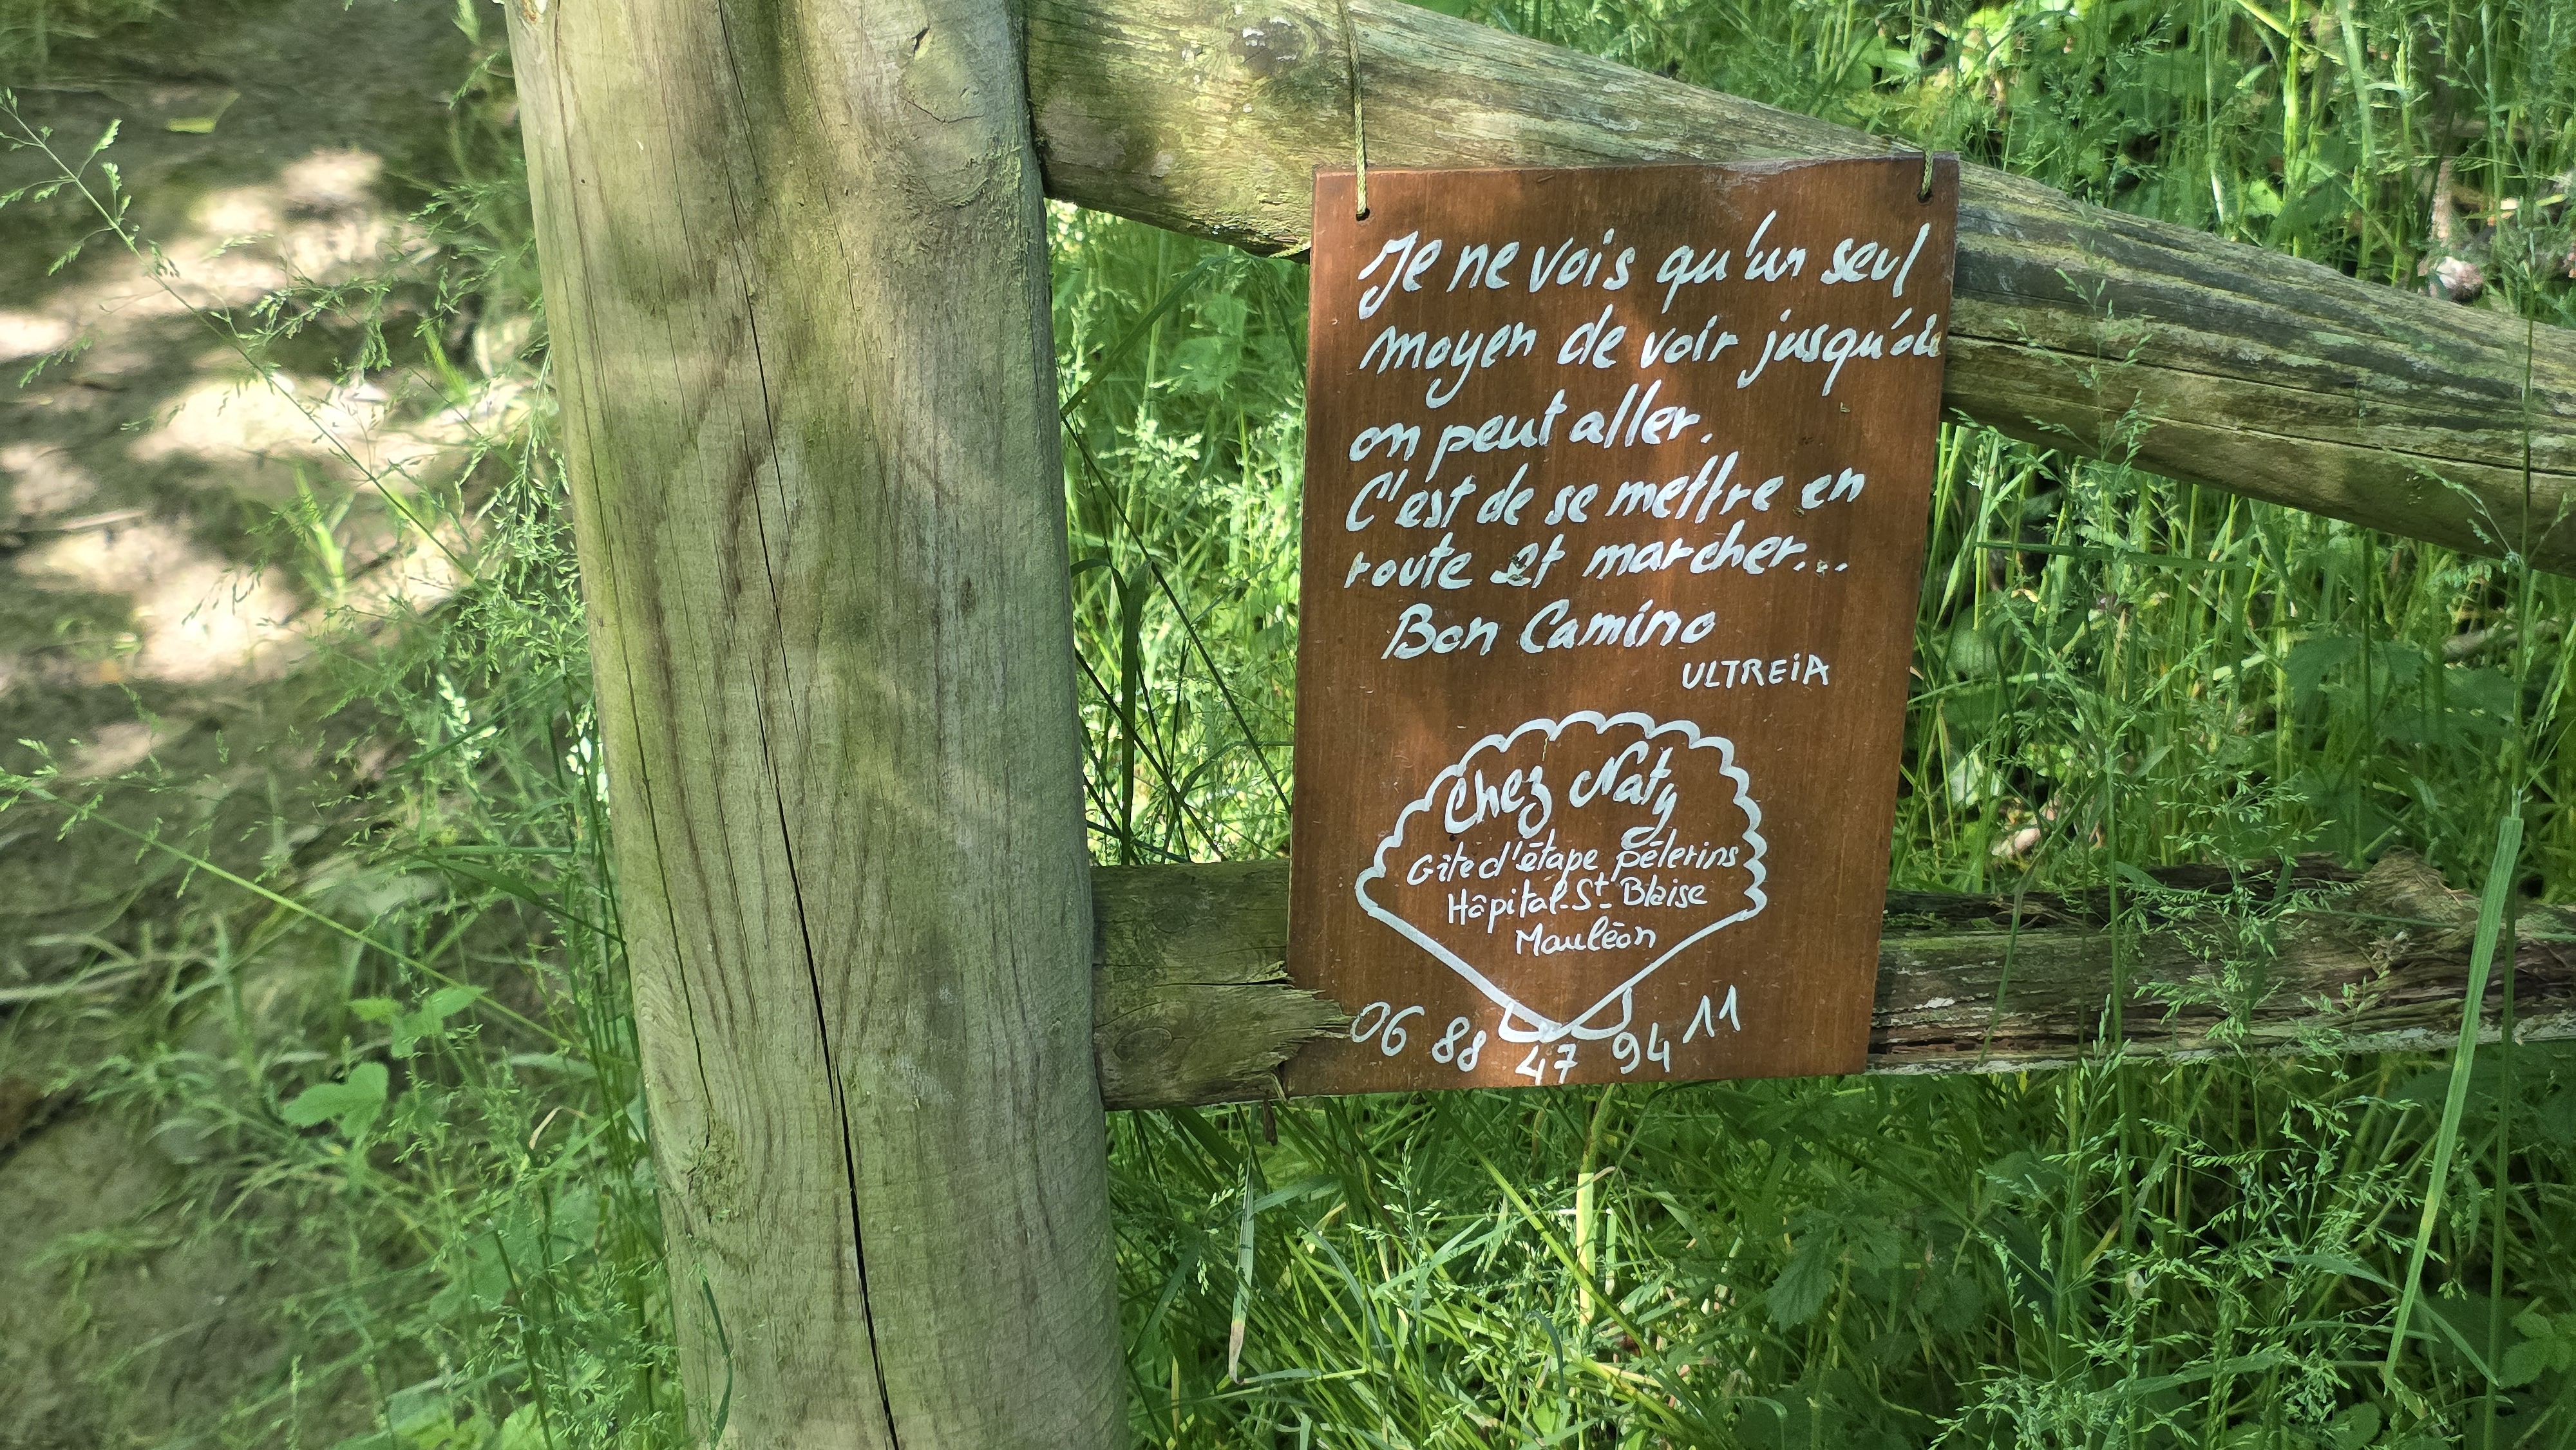 Je ne vois qu'un seul
moyen de voir jusqu'où
on peut aller.
C'est de se mettre en
route et marcher...
Bon Camino
ULTREiA
Chez Naty
Gîte d'étape pélerins
Hôpital-St-Blaise
Mauléon
06 88 47 94 11